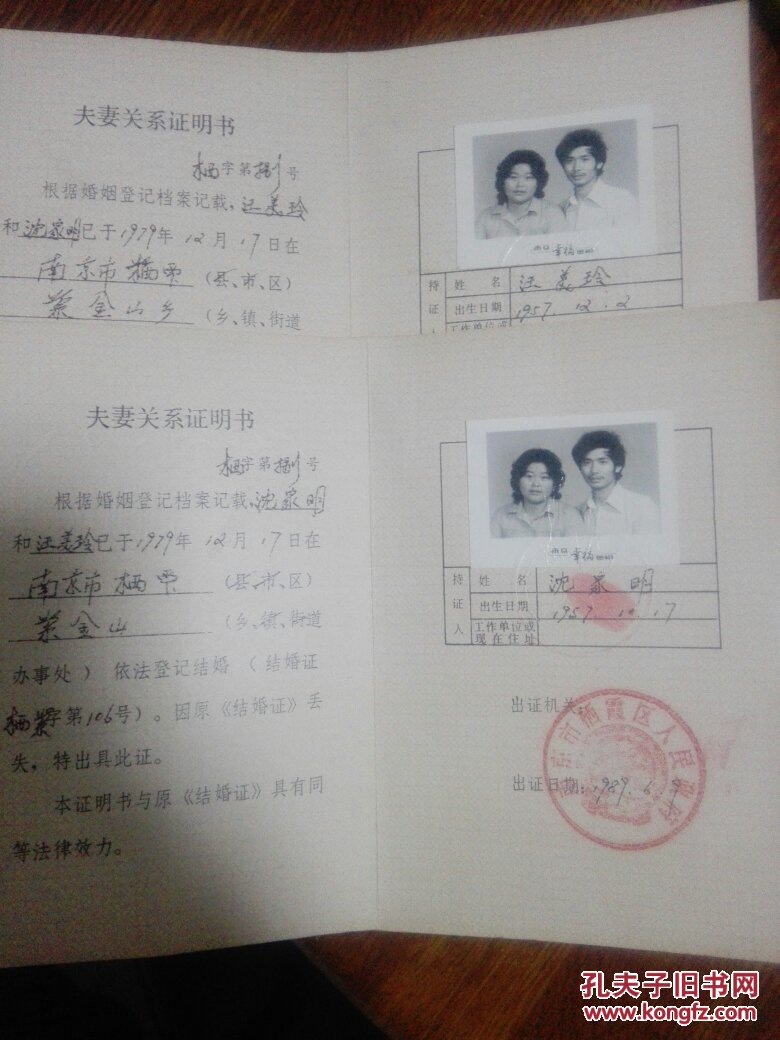 夫妻关系证明书
栖字第捌号
根据婚姻登记档案记载,汪美玲
和沈家明已于1979年12月17日在
南京市栖霞(县、市、区)
紫金山乡(乡、镇、街道
幸福
持证人
姓名 汪美玲
出生日期 1957.12.2
工作单位或
夫妻关系证明书
栖字第捌号
根据婚姻登记档案记载,沈家明
和汪美玲已于1979年12月17日在
南京市栖霞(县、市、区)
紫金山(乡、镇、街道
办事处)依法登记结婚(结婚证
栖紫字第106号)。因原《结婚证》丢
失,特出具此证。
本证明书与原《结婚证》具有同
等法律效力。
幸福
持证人
姓名 沈家明
出生日期 1957.10.17
工作单位或
现在住址
出证机关:
南京市栖霞区人民政府
出证日期:1989.6.9
孔夫子旧书网
www.kongfz.com